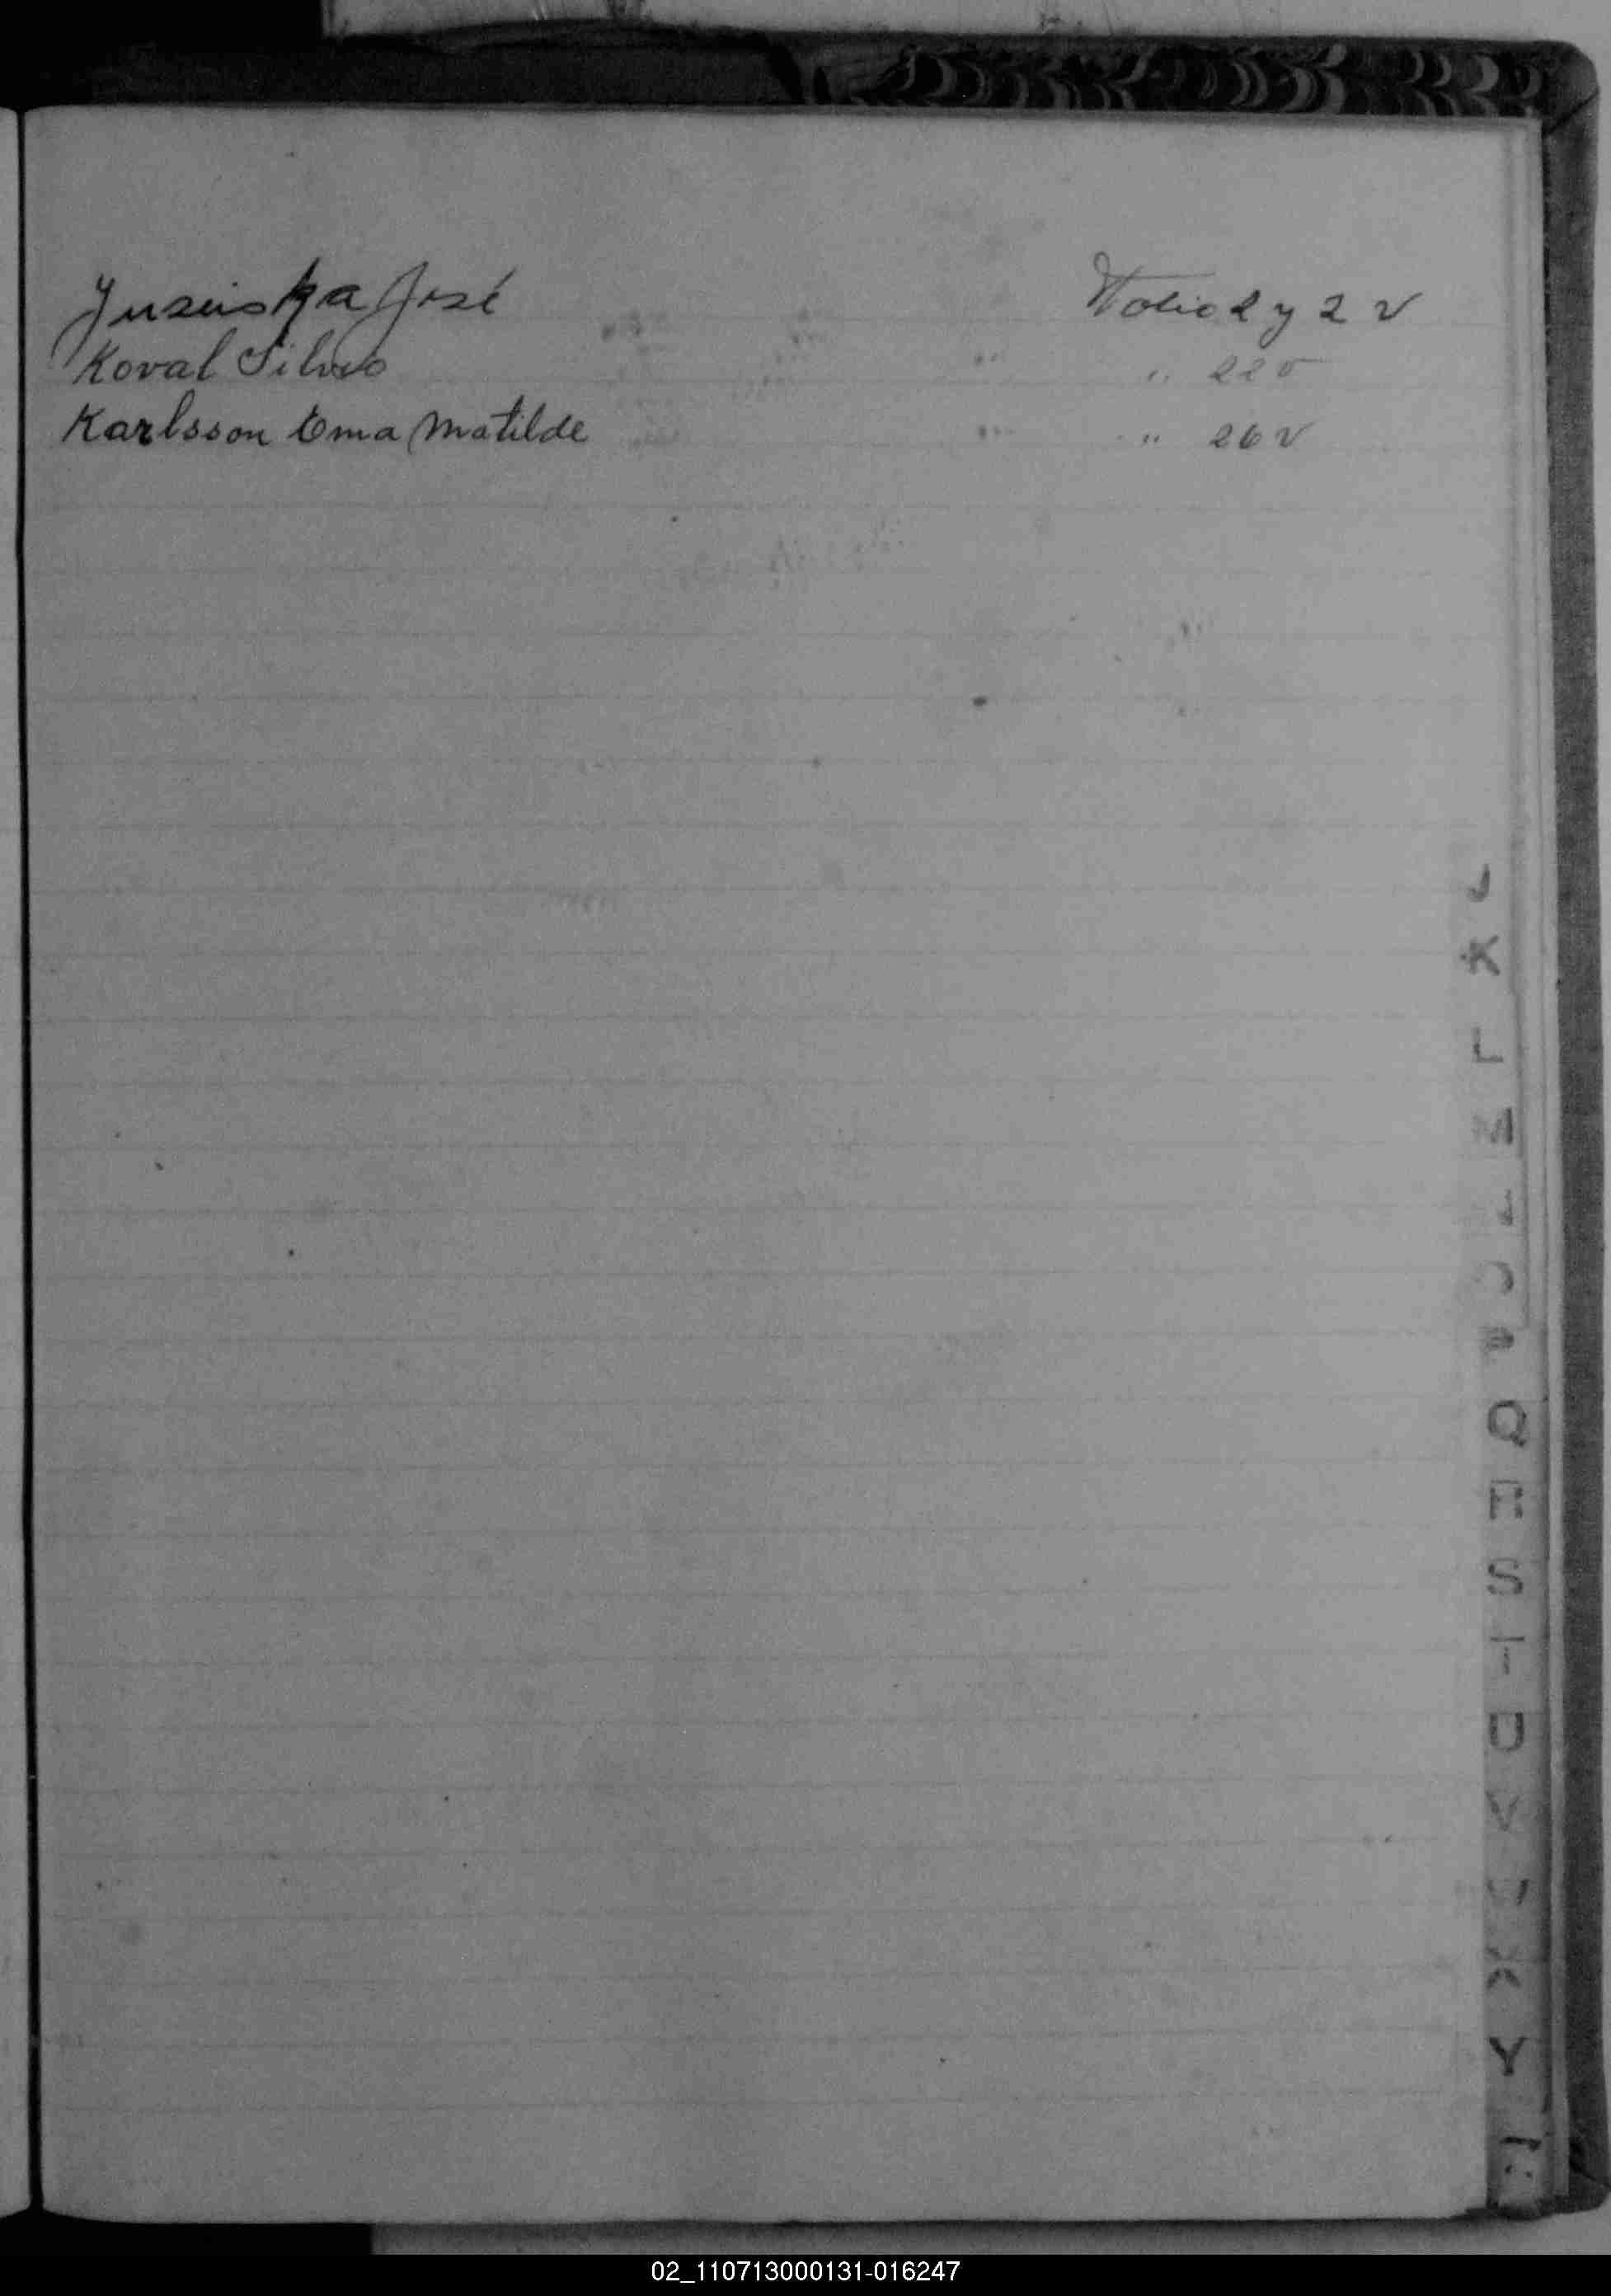 José Folio 2 y 2 v
Koval Silvio " 22 v
Karlsson Ema Matilde " 26 v
J
K
L
M
O
P
Q
R
S
T
U
V
W
X
Y
02_110713000131-016247